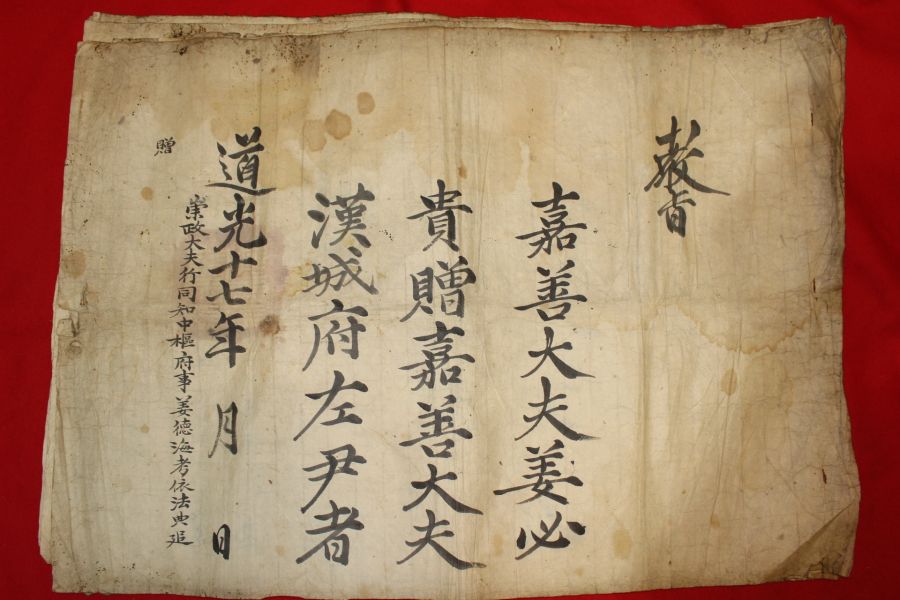 教旨
嘉善大夫姜必
貴贈嘉善大夫
漢城府左尹者
道光十七年 月 日
崇政大夫行同知中樞府事姜德海考依法典追
贈